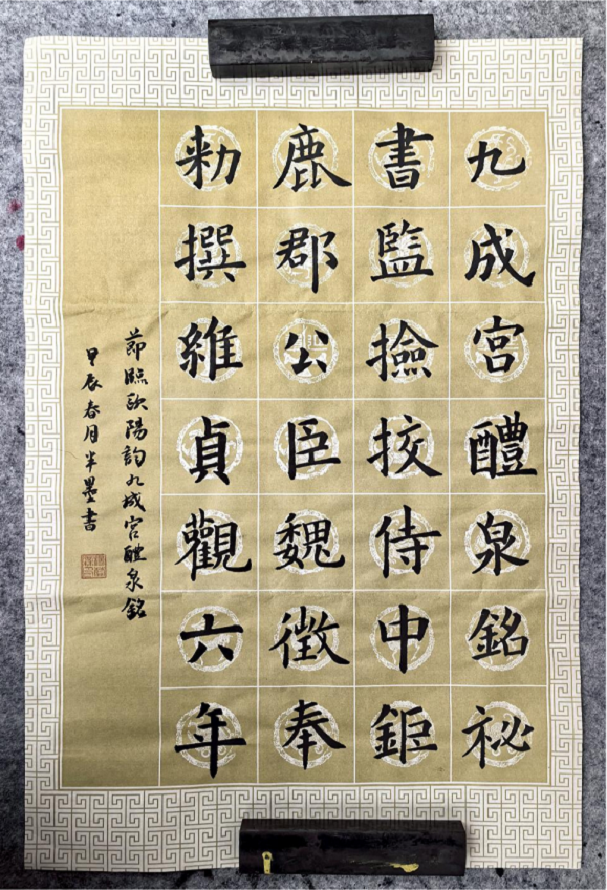 九成宮醴泉銘祕
書監撿挍侍中鉅
鹿郡公臣魏徴奉
勑撰維貞觀六年
節臨欧陽詢九成宫醴泉銘
甲辰春月半墨書